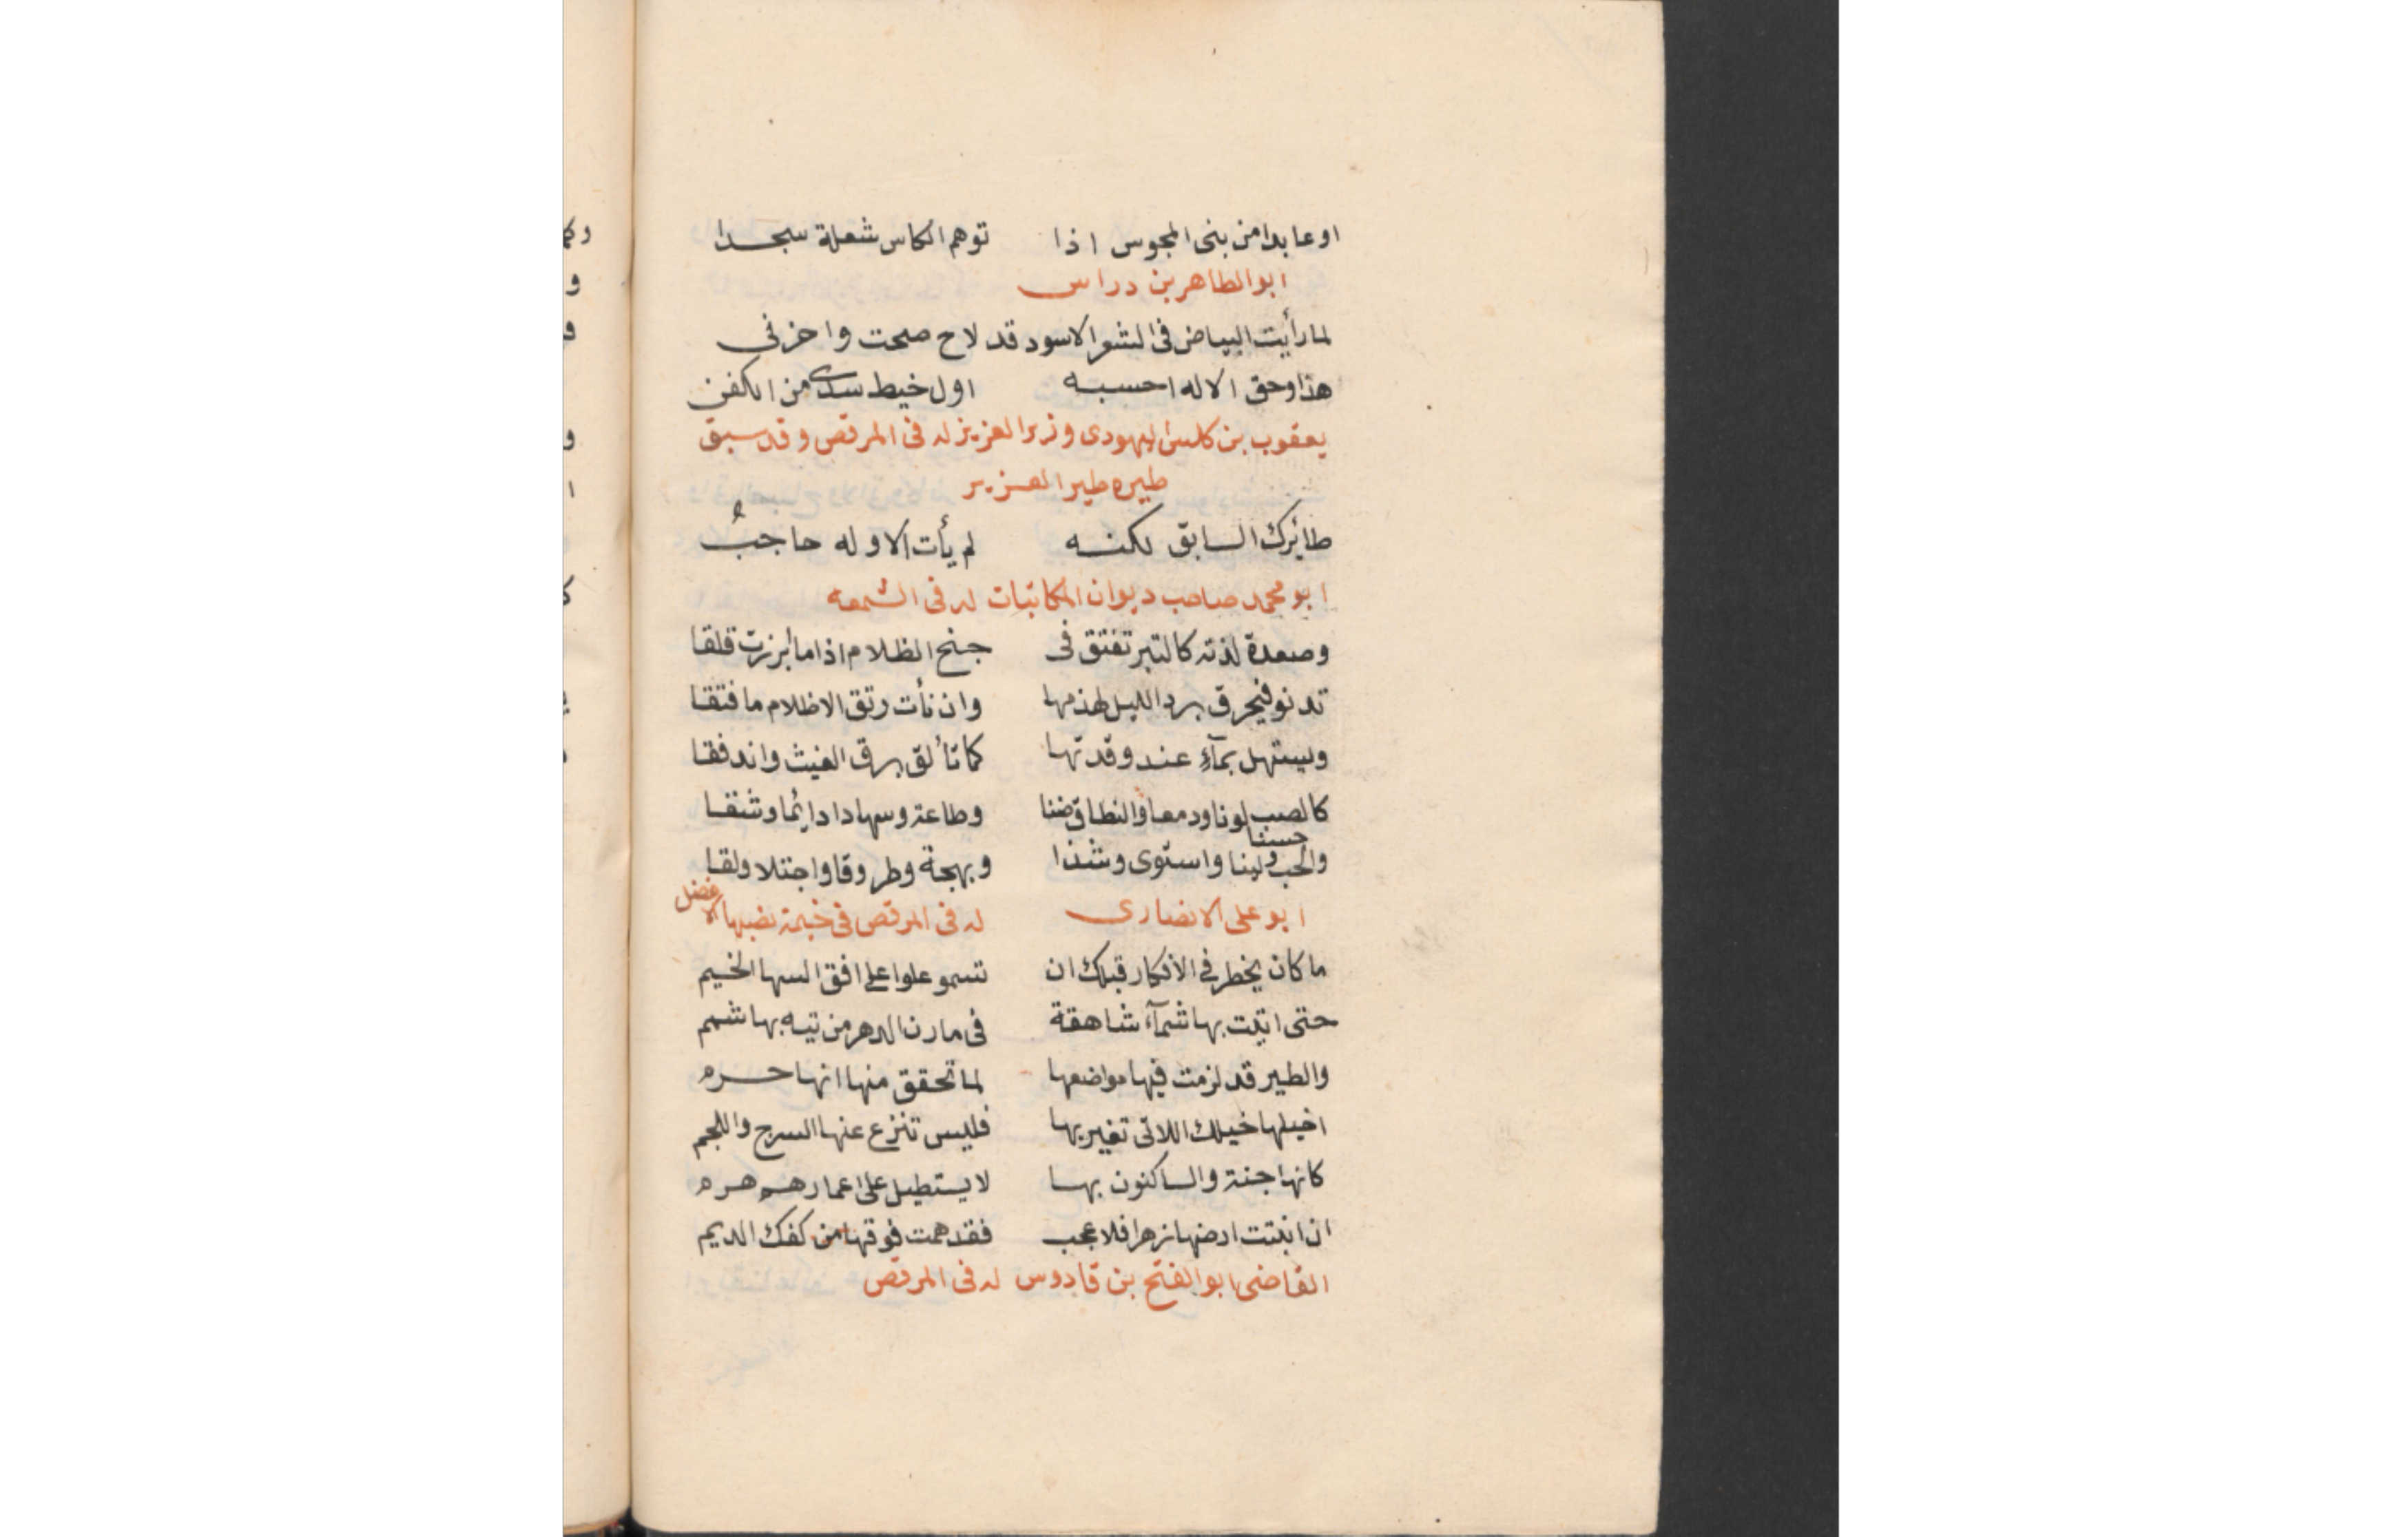 او عابدا من بنى المجوس اذا توهم الكاس شعلة سجدا
ابو الطاهر بن دراس
لما رأيت البياض فى الشعر الاسود قد لاح صحت واحزنى
هذا وحق الاله احسبه اول خيط سدى من الكفن
يعقوب بن كلس اليهودى وزير العزيز له فى المرقص وقد سبق
طيره طير العزيز
طايرك السابق لكنه لم يأت الا وله حاجبُ
ابو محمد صاحب ديوان المكاتبات له فى الشمعه
وصعدة لدنة كالتبر تفتق فى جنح الظلام اذا ما ابرزت قلقا
تدنو فيحرق برد الليل لهذمها وان نأت رتق الاظلام ما فتقا
وليستهل بمآء عند وقدتها كما تألق برق الغيث واندفقا
كالصب لونا ودمعا والنطاق ضنا وطاعة وسهادا دايما وشقا
والحب حسنا ولينا واستوى وشذا وبهجة وطروقا واجتلا ولقا
ابو على الانصارى له فى المرقص فى خيمة نصبها الافضل
ما كان يخطر فى الافكار قبلك ان تسمو علوا على افق السها الخيم
حتى اتيت بها شمآء شاهقة فى مارن الدهر من تيه بها شمم
والطير قد لزمت فيها مواضعها لما تحقق منها انها حرم
اخيلها خيلك اللاتى تغير بها فليس تنزع عنها السرج واللجم
كانها جنة والساكنون بها لا يستطيل على اعمارهم هرم
ان انبتت ارضها زهرا فلا عجب فقد همت فوقها من كفك الديم
القاضى ابو الفتح بن قادوس له فى المرقص